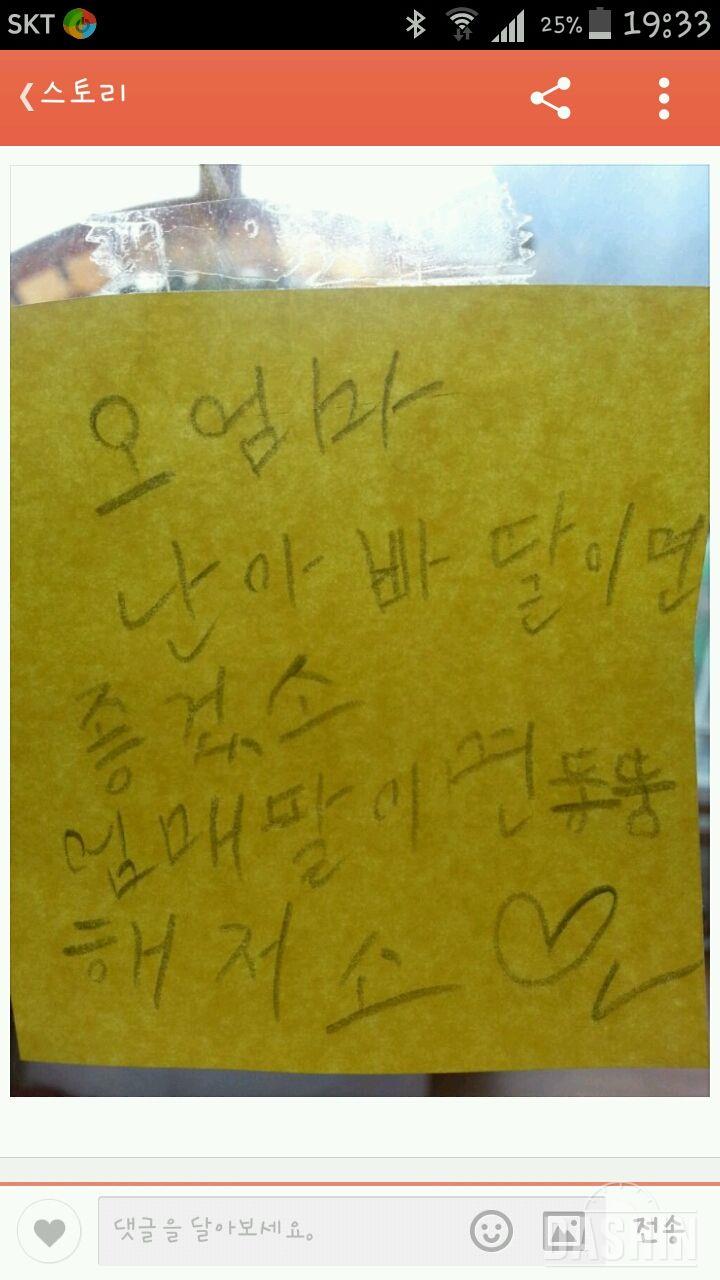 SKT 25% 19:33
스토리
오 엄마
난 아빠 딸이면
좋겠소
엄매 딸이면 뚱뚱
해저소
댓글을 달아보세요. 전송
DASHIN